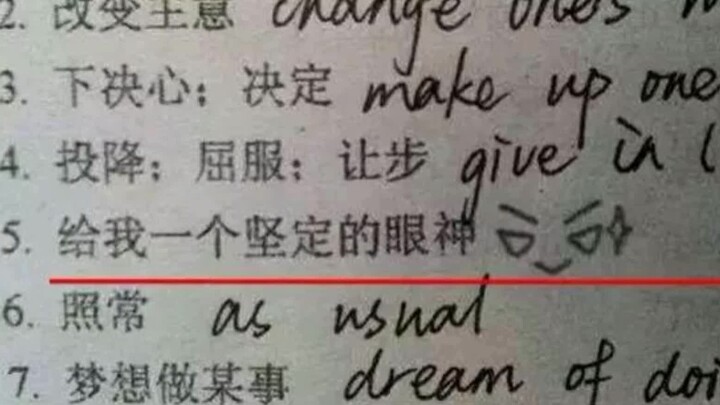 2. 改变主意 change one's
3. 下决心；决定 make up one
4. 投降；屈服；让步 give in
5. 给我一个坚定的眼神
6. 照常 as usual
7. 梦想做某事 dream of doi